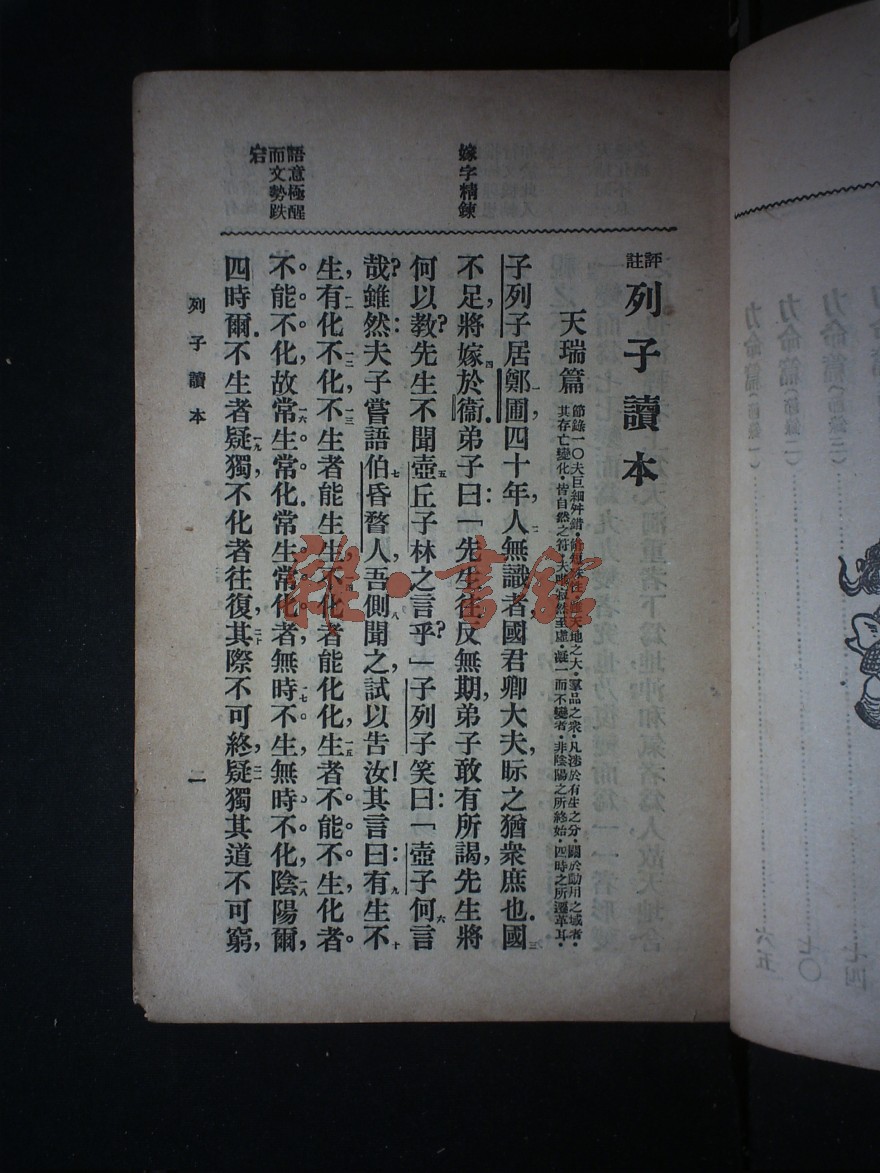 評註列子讀本
天瑞篇
節錄一〇夫巨細舛錯・
其存亡變化・皆自然之符・
天地之大・羣品之衆・凡涉於有生之分・關於動用之域者・
寂然至虛・凝一而不變者・非陰陽之所終始・四時之所遷革耳・
子列子居鄭圃一，四十年人無識者二，國君卿大夫眎之猶衆庶也三．國
不足，將嫁四於衞．弟子曰：「先生往反無期，弟子敢有所謁，先生將
何以教？先生不聞壺丘子林五之言乎？」子列子笑曰：「壺子何言六
哉？雖然：夫子嘗語伯昏瞀人七，吾側聞之八，試以告汝！其言曰：有生九不
生十，有化一一不化一二，不生者能生生一三，不化者能化化一四，生者不能不生一五，化者
不能不化，故常生常化一六。常生常化者，無時不生一七，無時不化，陰陽爾一八，
四時爾．不生者疑獨一九，不化者往復，其際不可終二十，疑獨其道不可窮二一，
嫁字精鍊
語意極醒
而文勢跌
宕
列子讀本
二
雜・書館
力命篇(節錄一)
六五
力命篇(節錄二)
七〇
力命篇(節錄三)
七四